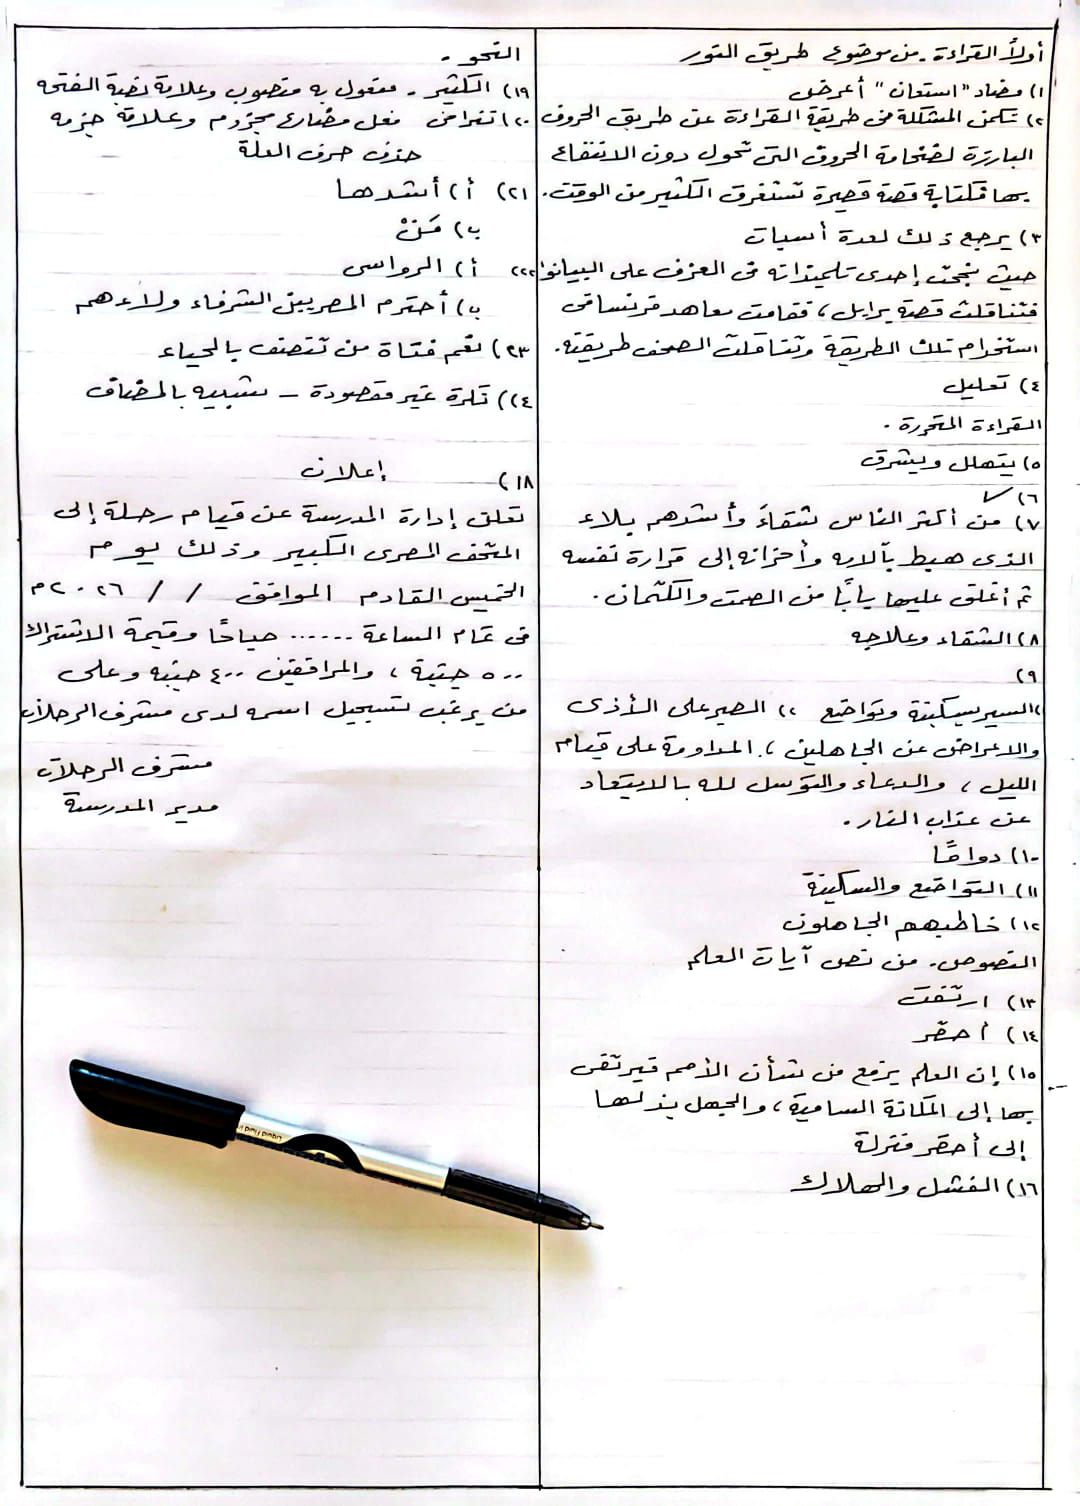 أولاً القراءة - من موضوع طريق النور
١) مضاد "استعان" أعرض
٢) تكمن المشكلة فى طريقة القراءة عن طريق الحروف
البارزة لضخامة الحروف التى تحول دون الانتفاع
بها فكتابة قصة قصيرة تستغرق الكثير من الوقت.
٣) يرجع ذلك لعدة أسباب
حيث نجحت إحدى تلميذاته فى العزف على البيانو
فتناقلت قصة برايل، فقامت معاهد فرنسا فى
استخدام تلك الطريقة وتناقلت الصحف طريقته.
٤) تعليل
القراءة المتحررة.
٥) يتهلل ويشرق
٦) ✓
٧) من أكثر الناس شقاءً وأشدهم بلاء
الذى هبط بآلامه وأحزانه إلى قرارة نفسه
ثم أغلق عليها بابًا من الصمت والكتمان.
٨) الشقاء وعلاجه
٩)
١) السير بسكينة وتواضع ٢) الصبر على الأذى
والاعراض عن الجاهلين ، المداومة على قيام
الليل ، والدعاء والتوسل لله بالابتعاد
عن عذاب النار.
١٠) دوامًا
١١) التواضع والسكينة
١٢) خاطبهم الجاهلون
النصوص - من نص آيات العلم
١٣) ارتقت
١٤) أحقر
١٥) إن العلم يرفع من شأن الأمم فيرتقى
بها إلى المكانة السامية، والجهل ينزلها
إلى أحقر منزلة
١٦) الفشل والهلاك
النحو -
١٩) الكثير - مفعول به منصوب وعلامة نصبة الفتحه
٢٠) تتغرامى فعل مضارع مجزوم وعلامة جزمه
حذف حرف العلة
٢١) أ) أشدها
ب) مَنْ
٢٢) أ) الرواسى
ب) أحترم المصريين الشرفاء ولاءهم
٢٣) نعم فتاة من تتصف بالحياء
٢٤) نكرة غير مقصودة - شبيه بالمضاف
١٨) إعلان
تعلن إدارة المدرسة عن قيام رحلة إلى
المتحف المصرى الكبير وذلك يوم
الخميس القادم الموافق / / ٢٠٢٦م
فى تمام الساعة ...... صباحًا وقيمة الاشتراك
٥٠٠ جنية ، والمرافقين ٤٠٠ جنيه وعلى
من يرغب تسجيل اسمه لدى مشرف الرحلات
مشرف الرحلات
مدير المدرسة